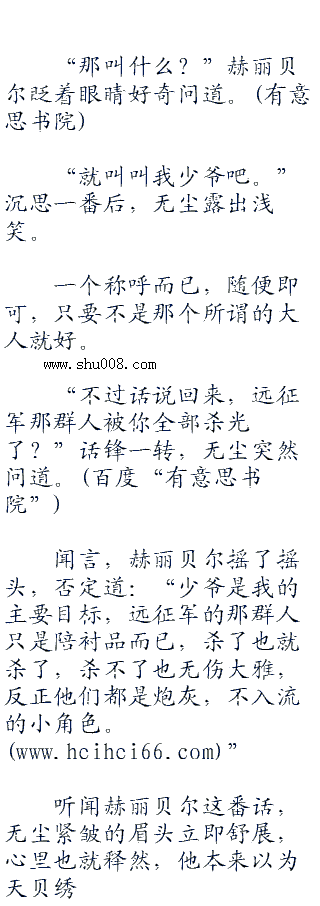 “那叫什么？”赫丽贝
尔眨着眼睛好奇问道。(有意
思书院)
“就叫叫我少爷吧。”
沉思一番后，无尘露出浅
笑。
一个称呼而已，随便即
可，只要不是那个所谓的大
人就好。
www.shu008.com
“不过话说回来，远征
军那群人被你全部杀光
了？”话锋一转，无尘突然
问道。(百度“有意思书
院”)
闻言，赫丽贝尔摇了摇
头，否定道：“少爷是我的
主要目标，远征军的那群人
只是陪衬品而已，杀了也就
杀了，杀不了也无伤大雅，
反正他们都是炮灰，不入流
的小角色。
(www.hcihci66.com)”
听闻赫丽贝尔这番话，
无尘紧皱的眉头立即舒展，
心里也就释然，他本来以为
天贝绣